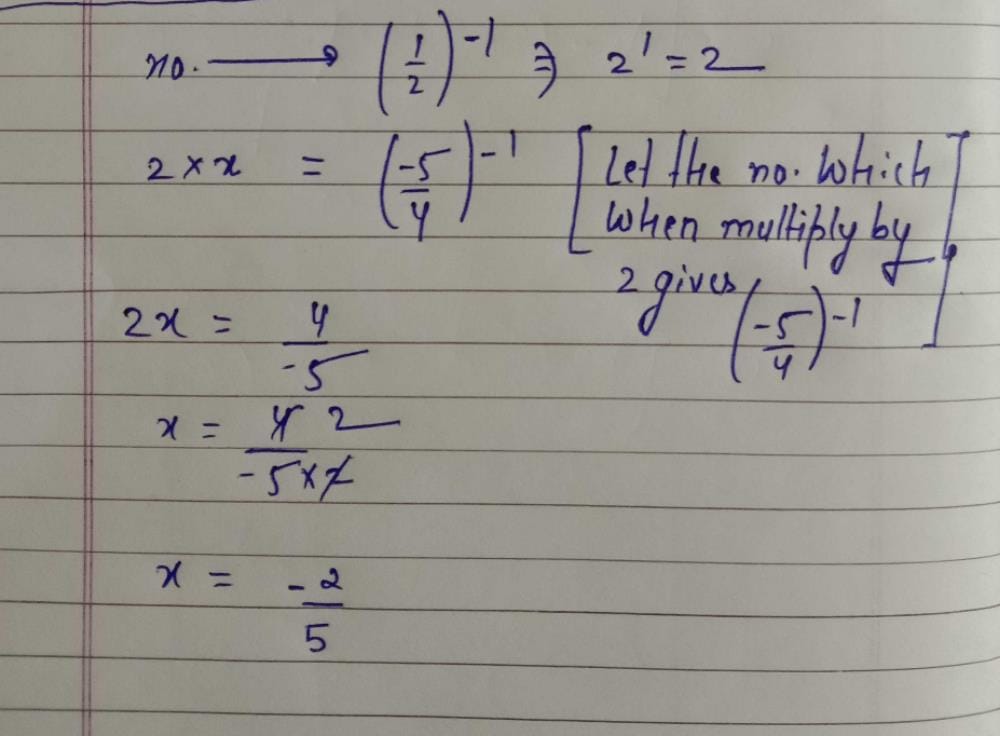 no. ⟶ (1/2)^-1 ⇒ 2^1 = 2
2 × x = (-5/4)^-1 [Let the no. which
when multiply by
2 gives (-5/4)^-1]
2x = 4/-5
x = 4 2/-5×2
x = -2/5